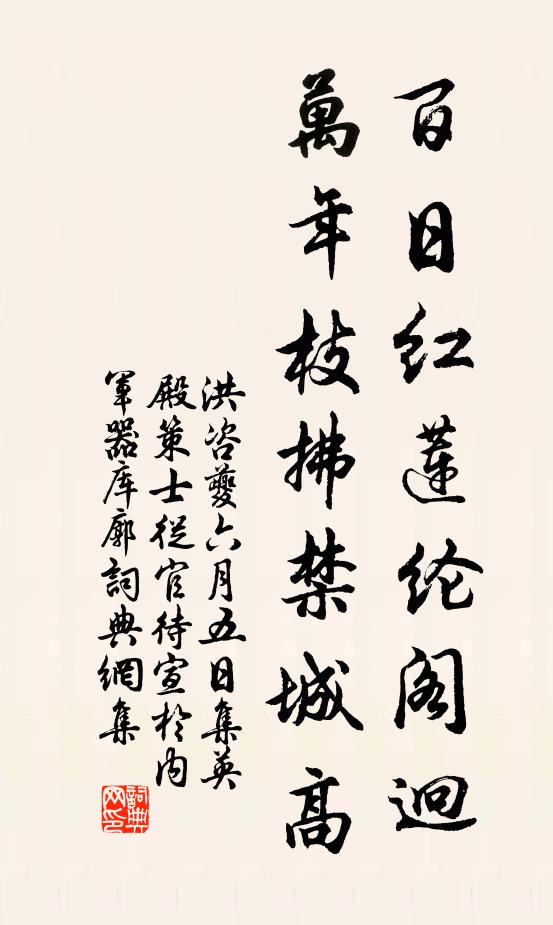 百日红蓮纶阁迥
萬年枝拂禁城高
洪咨夔六月五日集英
殿策士從官待宣於内
軍器库廊詞典網集
詞典
网印